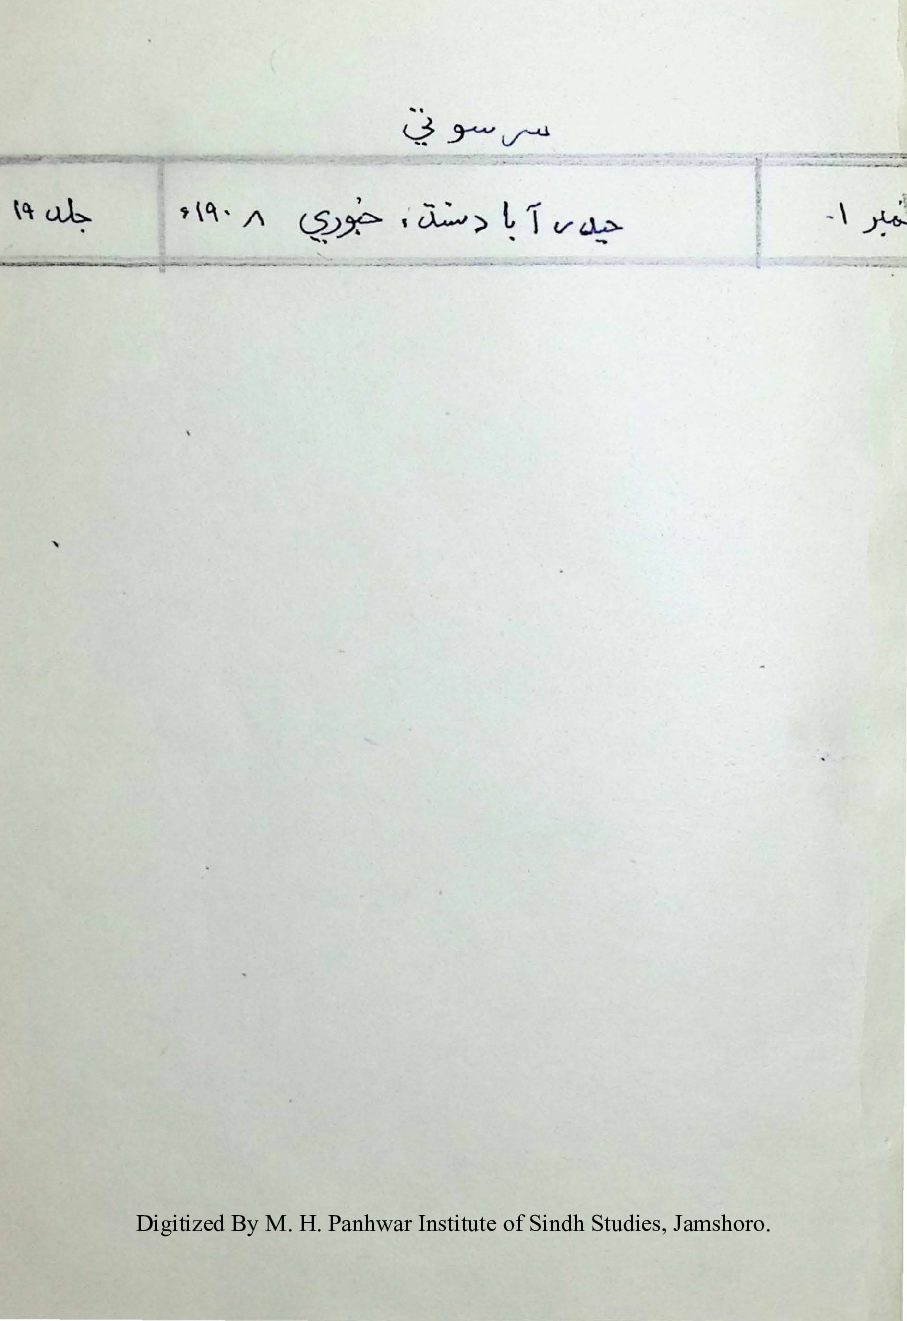 سرسوتي
نمبر ۱- حيدرآباد سنڌ، جنوري ۱۹۰۸ء جلد ۱۹
Digitized By M. H. Panhwar Institute of Sindh Studies, Jamshoro.